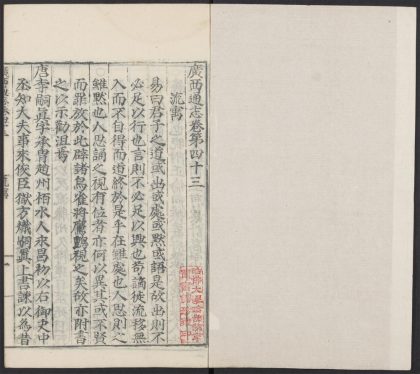 廣西通志卷第四十三
流寓
易曰君子之道或出或處或黙或語是故出則不
必足以行也言則不必足以興也苟謫徙流移無
入而不自得而道終於是乎在雖處也人思則之
雖黙也人思誦之視有位者亦何以異其或不賢
而罪放於此辟諸鳥雀將鷹鸇視之矣故亦附書
之以示勸沮焉
唐李嗣真字承胄趙州栢水人永昌初以右御史中
丞知大夫事來俊臣獄方熾嗣真上書諫以為昔